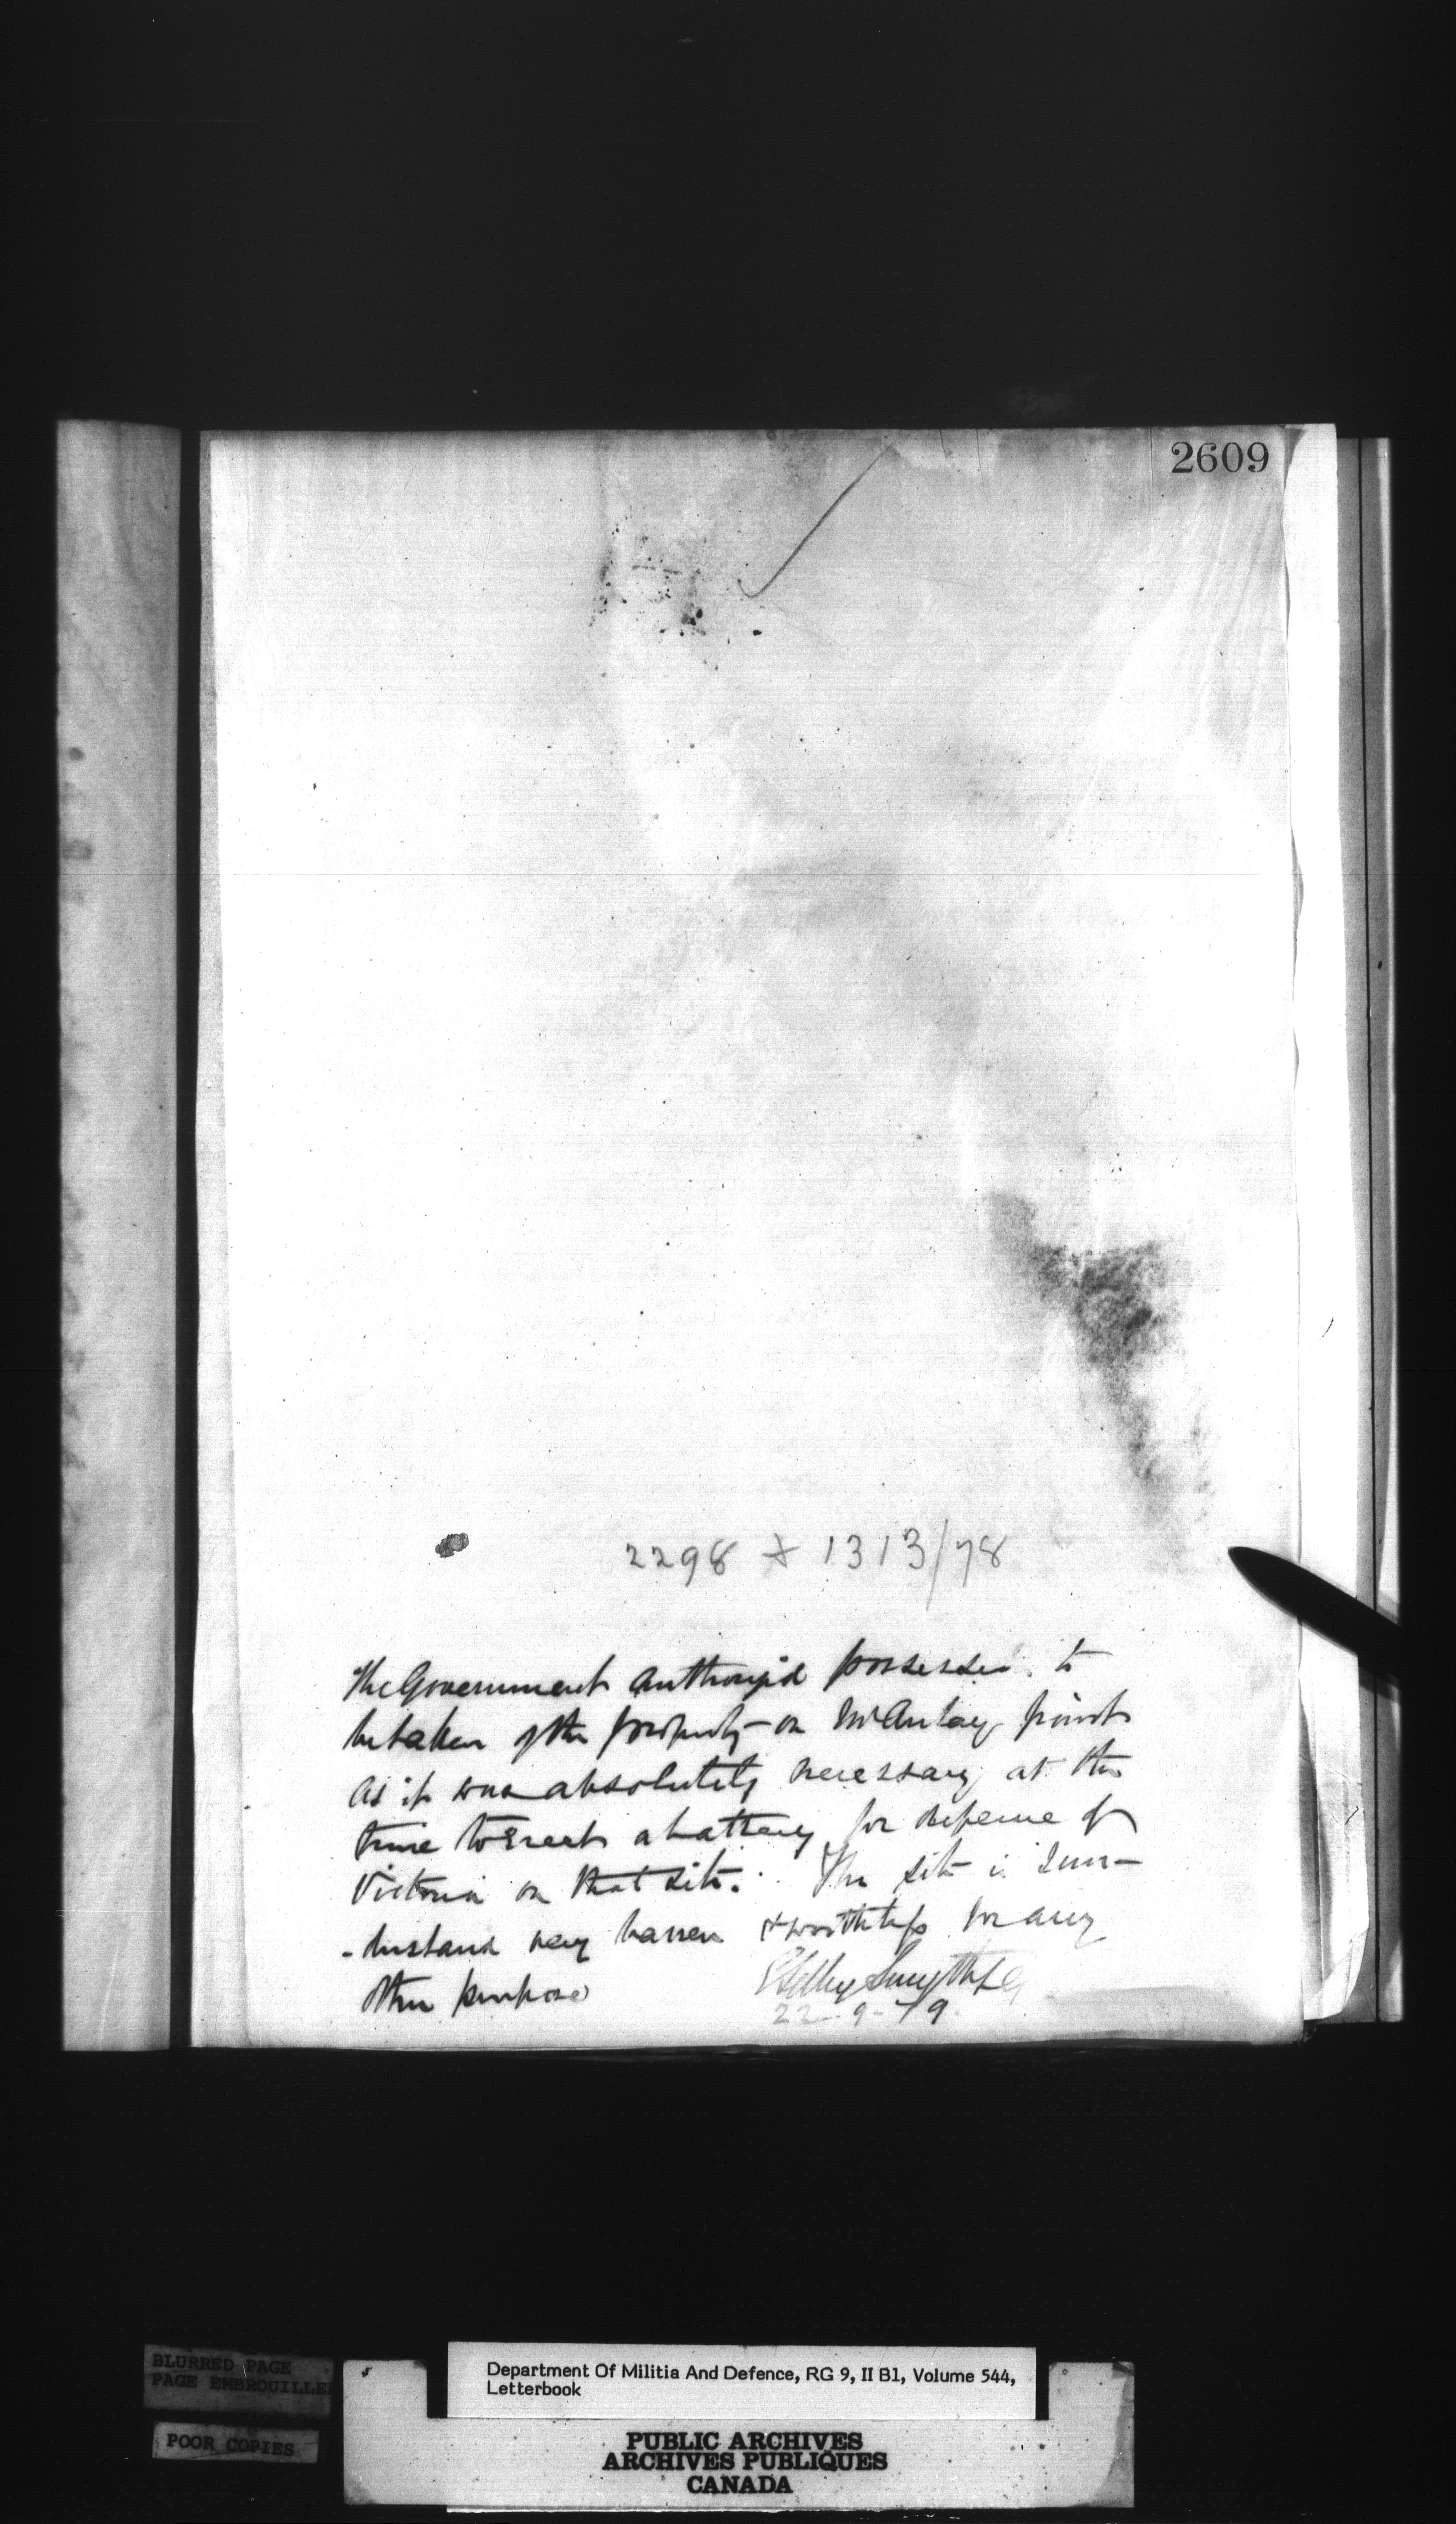 2609
2298 + 1313/78
The Government authorized possession to
be taken of the property on McAulay point
as it was absolutely necessary at the
time to erect a battery for defence of
Victoria on that site. The site is I un-
-derstand very barren & worthless for any
other purpose
Selby Smyth LG
22-9-79
BLURRED PAGE
PAGE EMBROUILLEE
POOR COPIES
Department Of Militia And Defence, RG 9, II B1, Volume 544,
Letterbook
PUBLIC ARCHIVES
ARCHIVES PUBLIQUES
CANADA